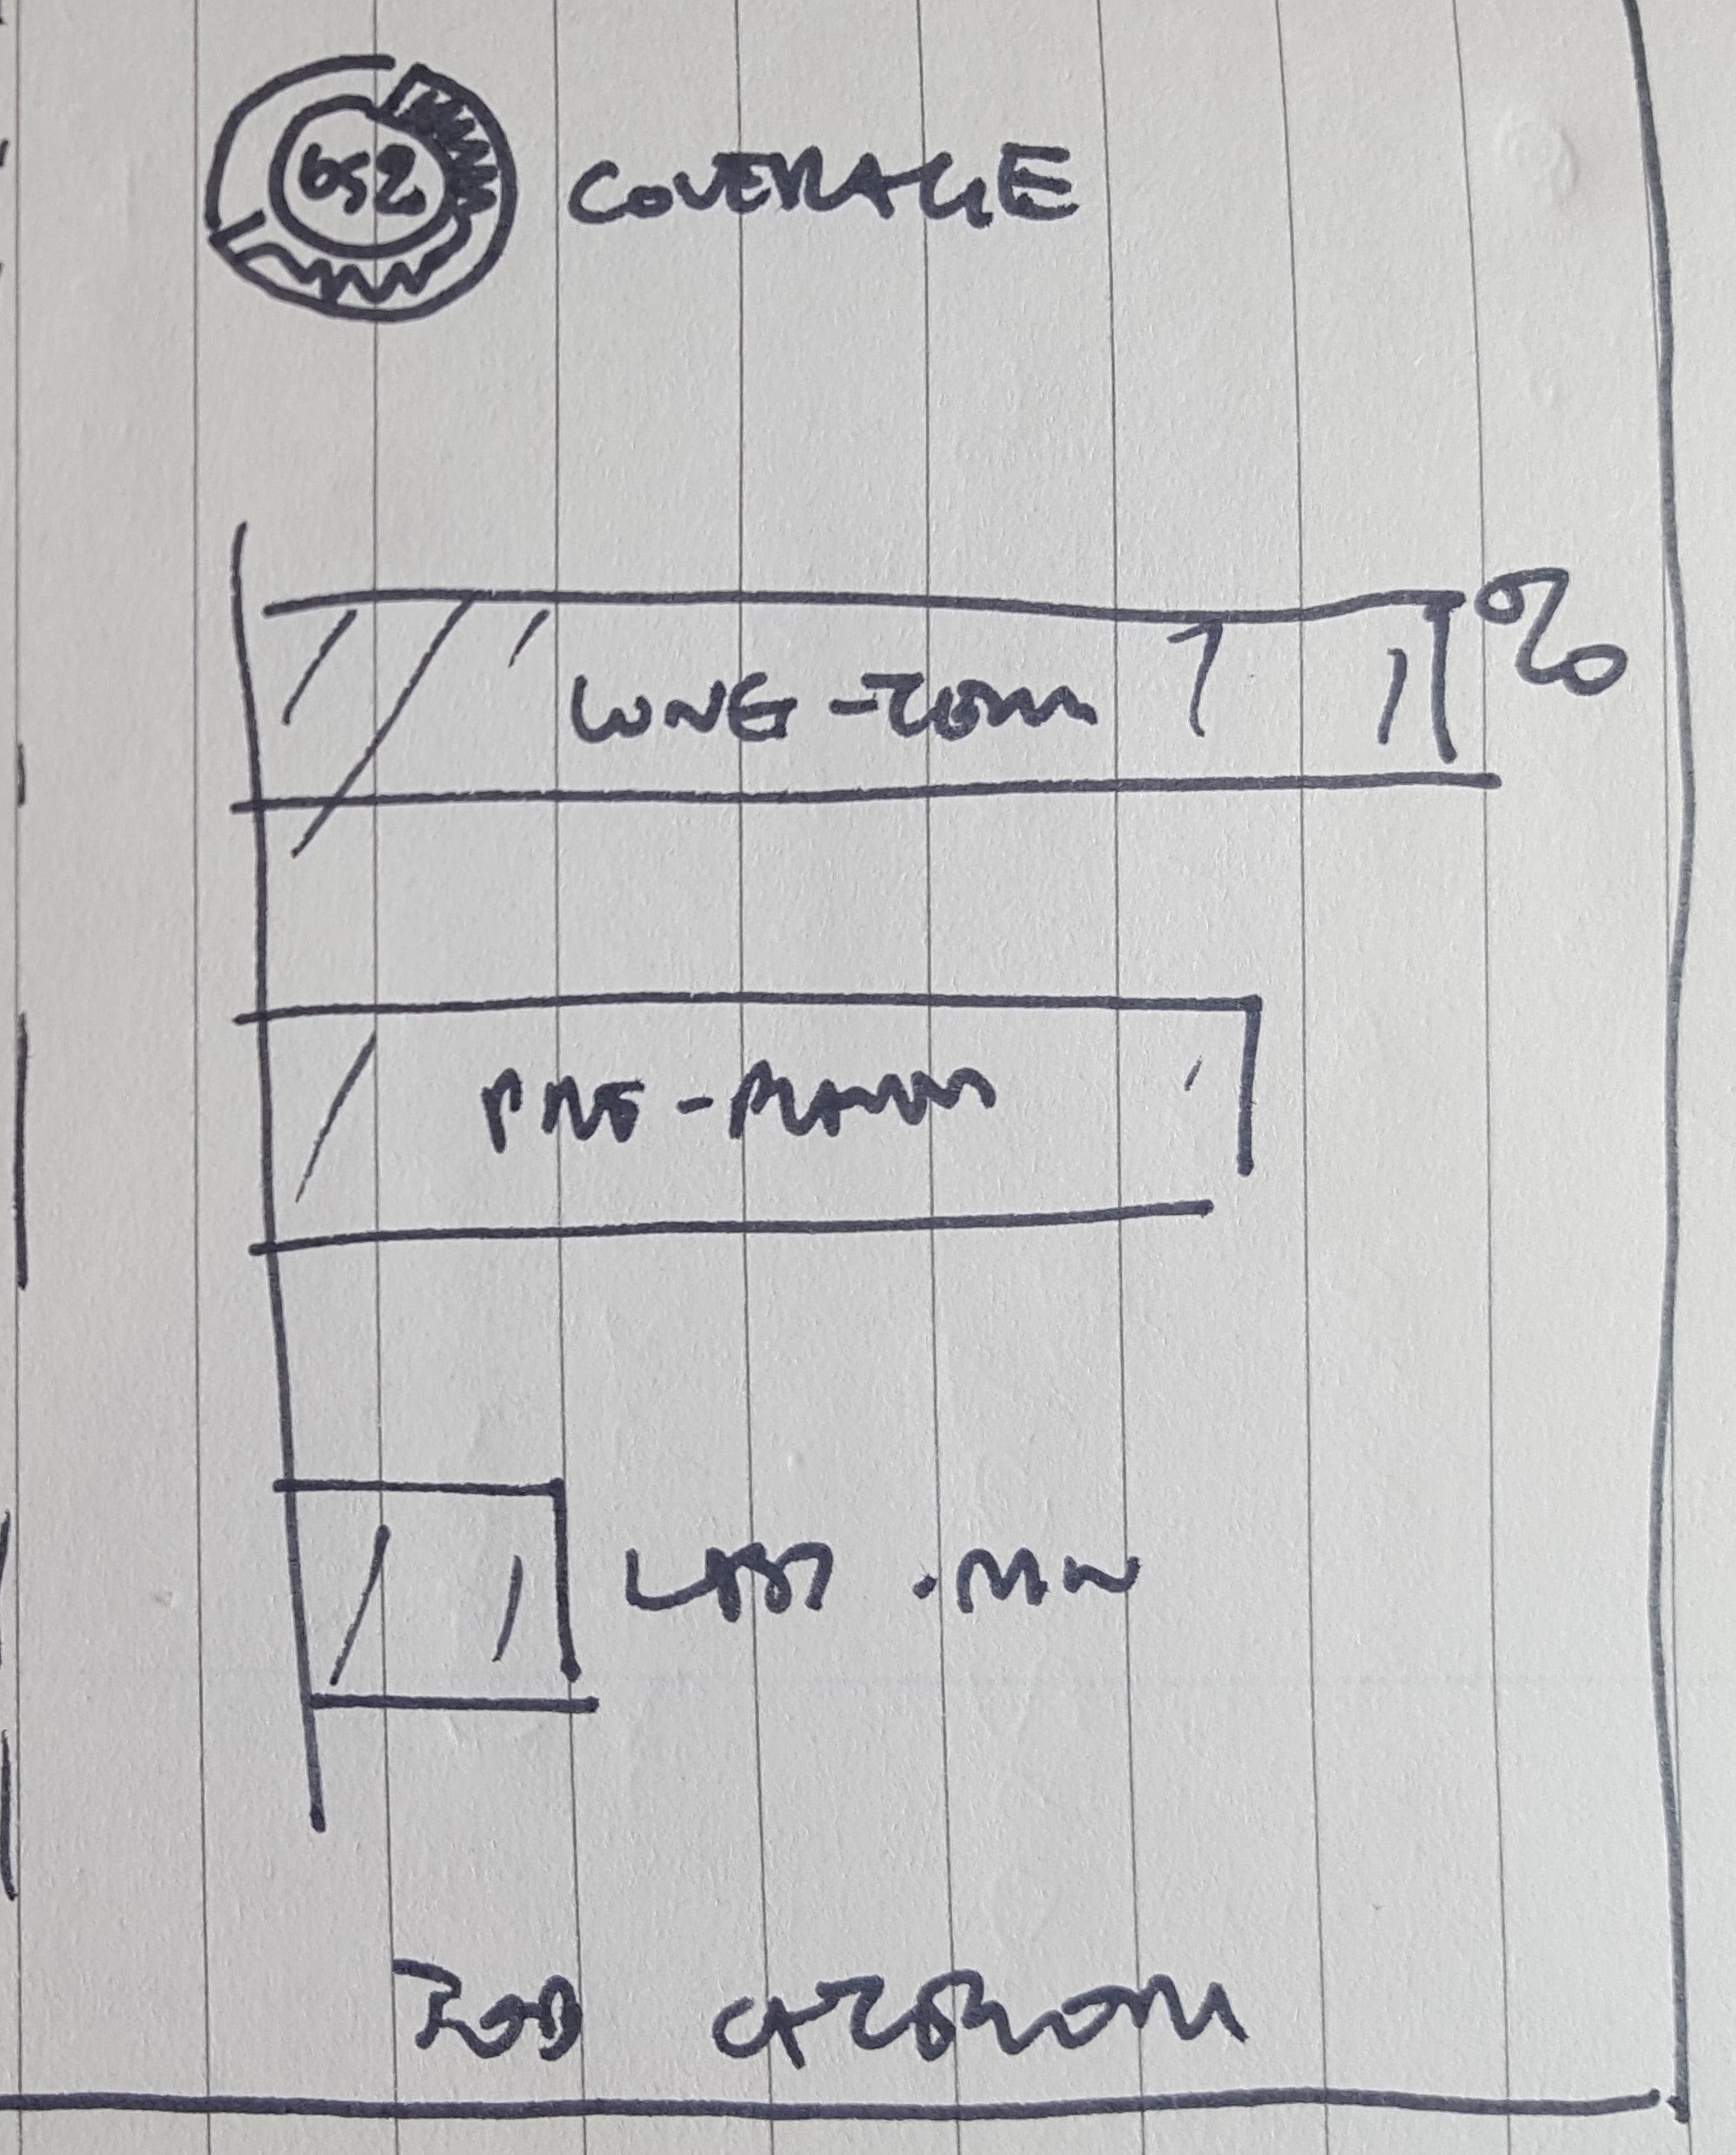 652 COVERAGE
LONG-TERM %
PRE-PLANN
LAST-MIN
JOB CATEGORY